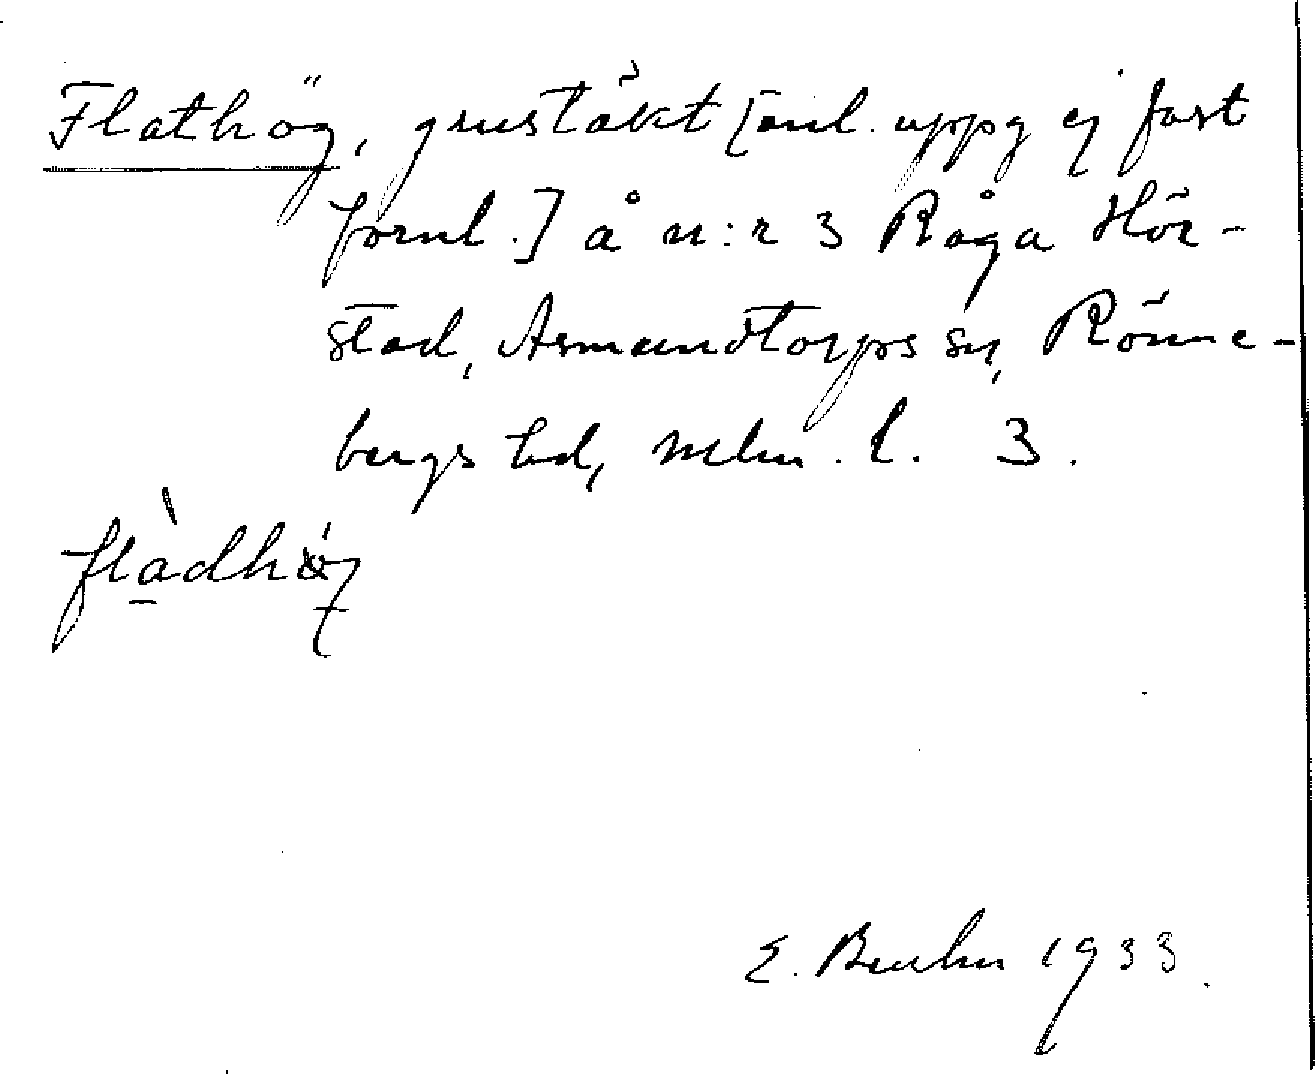 Flathög, grustäkt [enl. uppg ej fast
fornl.] å n:r 3 Råga Hör-
stad, Asmundtorps sn, Rönne-
bergs hd, Mlm. l. 3.
flàdhǿj
E. Bruhn 1933.